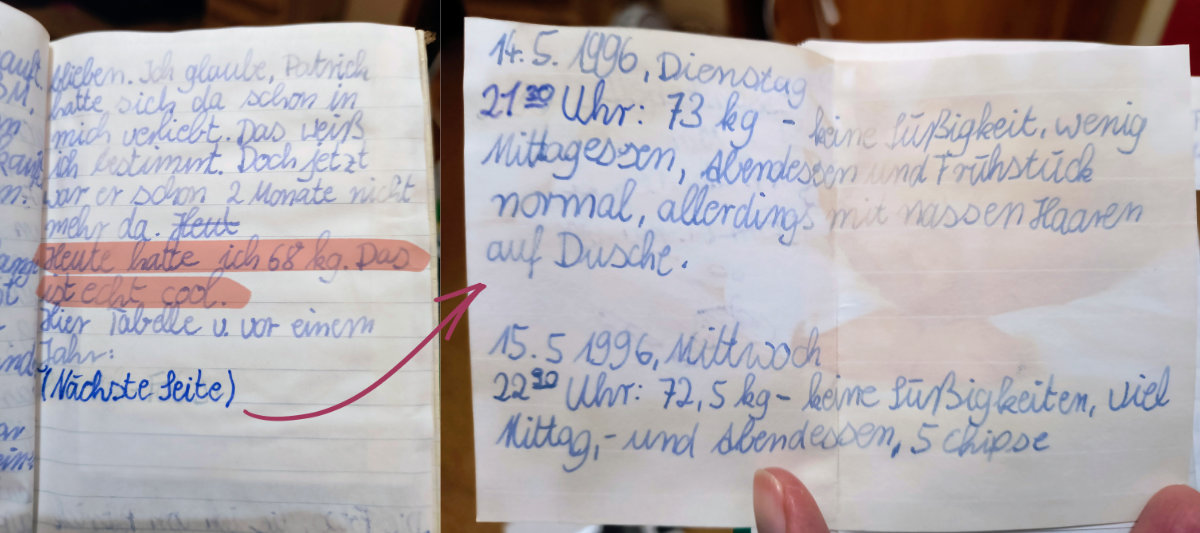 blieben. Ich glaube, Patrick
hatte sich da schon in
mich verliebt. Das weiß
ich bestimmt. Doch jetzt
war er schon 2 Monate nicht
mehr da. Heut
Heute hatte ich 68 kg. Das
ist echt cool.
Hier Tabelle v. vor einem
Jahr:
(Nächste Seite)
14.5.1996, Dienstag
21³⁰ Uhr: 73 kg - keine Süßigkeit, wenig
Mittagessen, Abendessen und Frühstück
normal, allerdings mit nassen Haaren
auf Dusche.
15.5 1996, Mittwoch
22³⁰ Uhr: 72,5 kg - keine Süßigkeiten, viel
Mittag,- und Abendessen, 5 Chipse